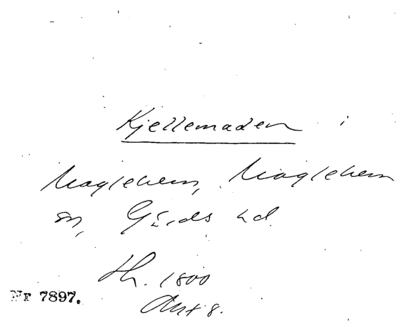 Kjellemaden i
Maglehem, Maglehem
sn, Gärds hd.
Hh. 1800
Akt 8.
Nr 7897.